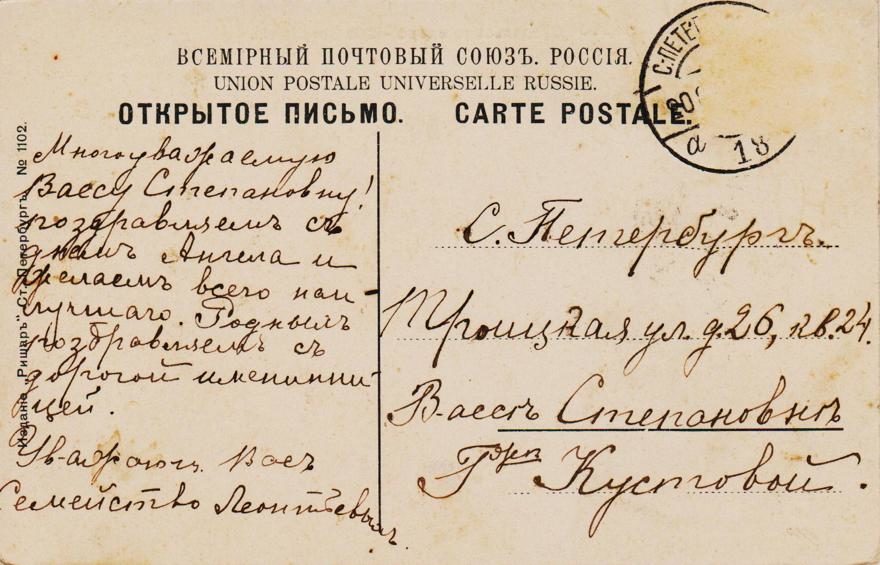 ВСЕМІРНЫЙ ПОЧТОВЫЙ СОЮЗЪ. РОССІЯ.
UNION POSTALE UNIVERSELLE RUSSIE.
ОТКРЫТОЕ ПИСЬМО. CARTE POSTALE.
С.ПЕТЕР
20
а 18
Изданіе „Ришаръ" Ст. Петербургъ № 1102.
Многоуважаемую
Вассу Степановну!
поздравляемъ съ
днемъ Ангела и
желаемъ всего наи-
лучшаго. Роднымъ
поздравляемъ съ
дорогой именинни-
цей.
Уважающ. Васъ
Семейство Леонтьевымъ
С. Петербургъ.
Троицкая ул. д. 26, кв. 24.
Вассѣ Степановнѣ
Гжѣ Кустовой.